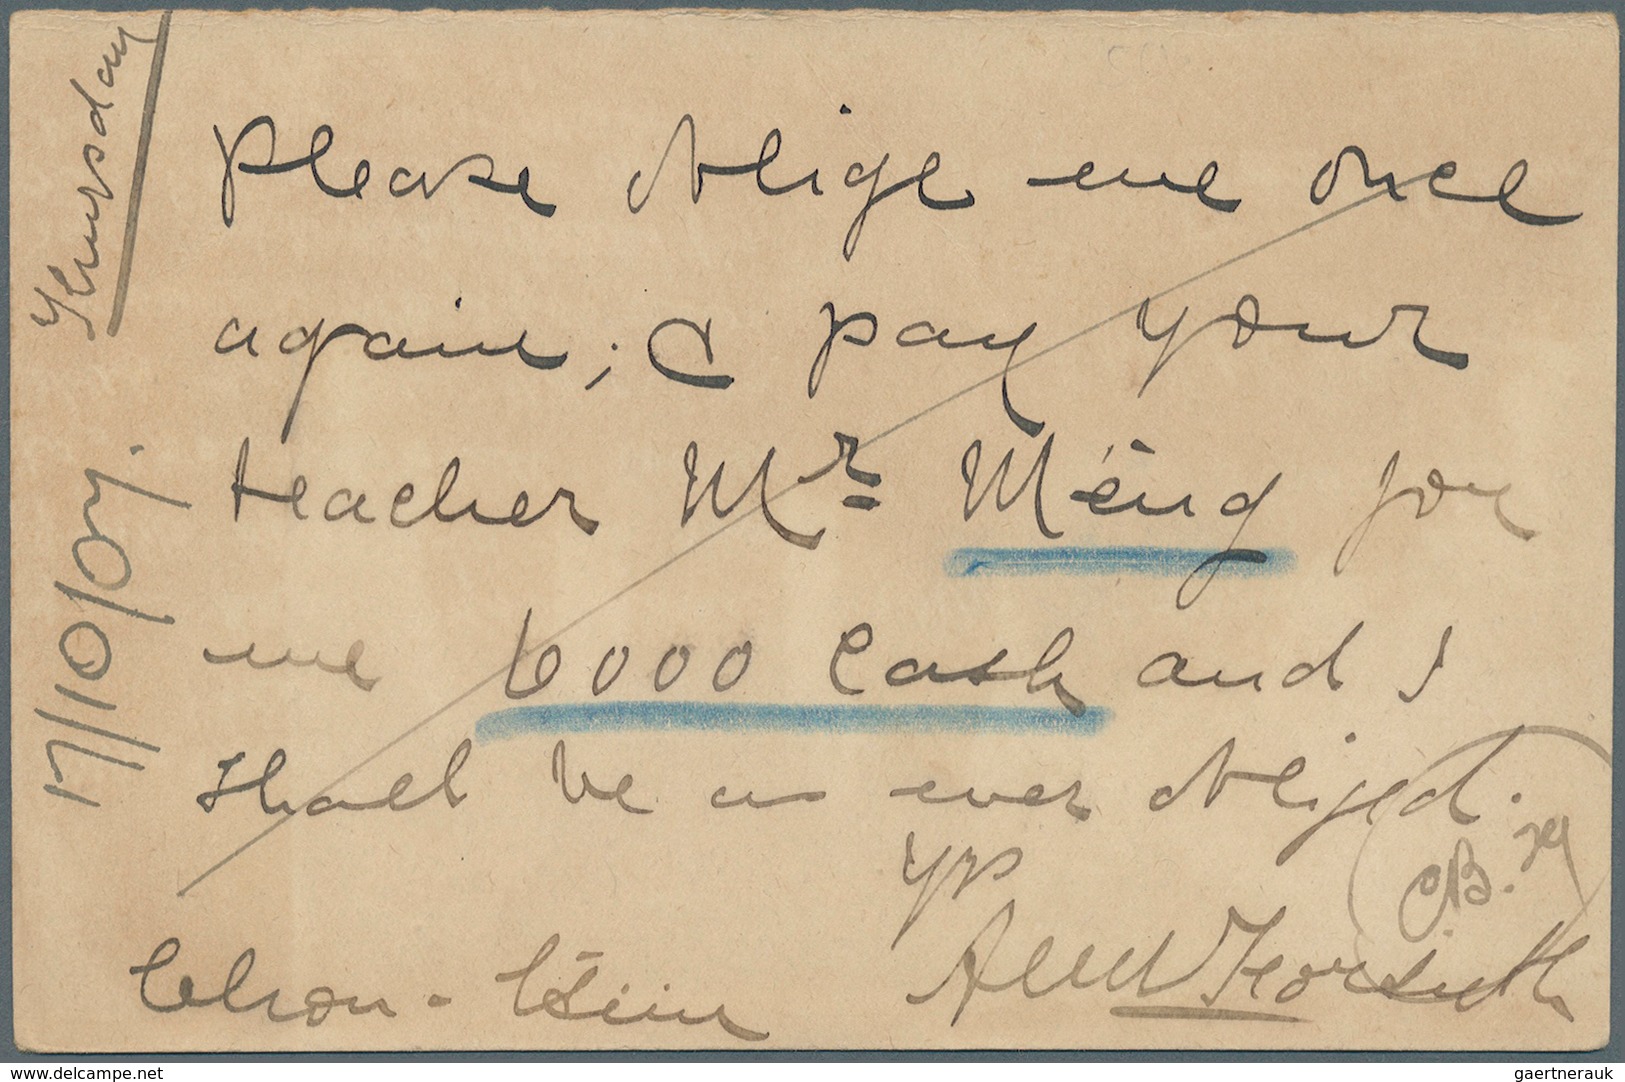 Thursday
17/10/07.
Please oblige me once
again; & pay your
teacher Mr Mêng for
me 6000 Cash and I
shall be as ever obliged.
Yrs
Forsyth
Chou-
www.delcampe.net
gaertnerauk